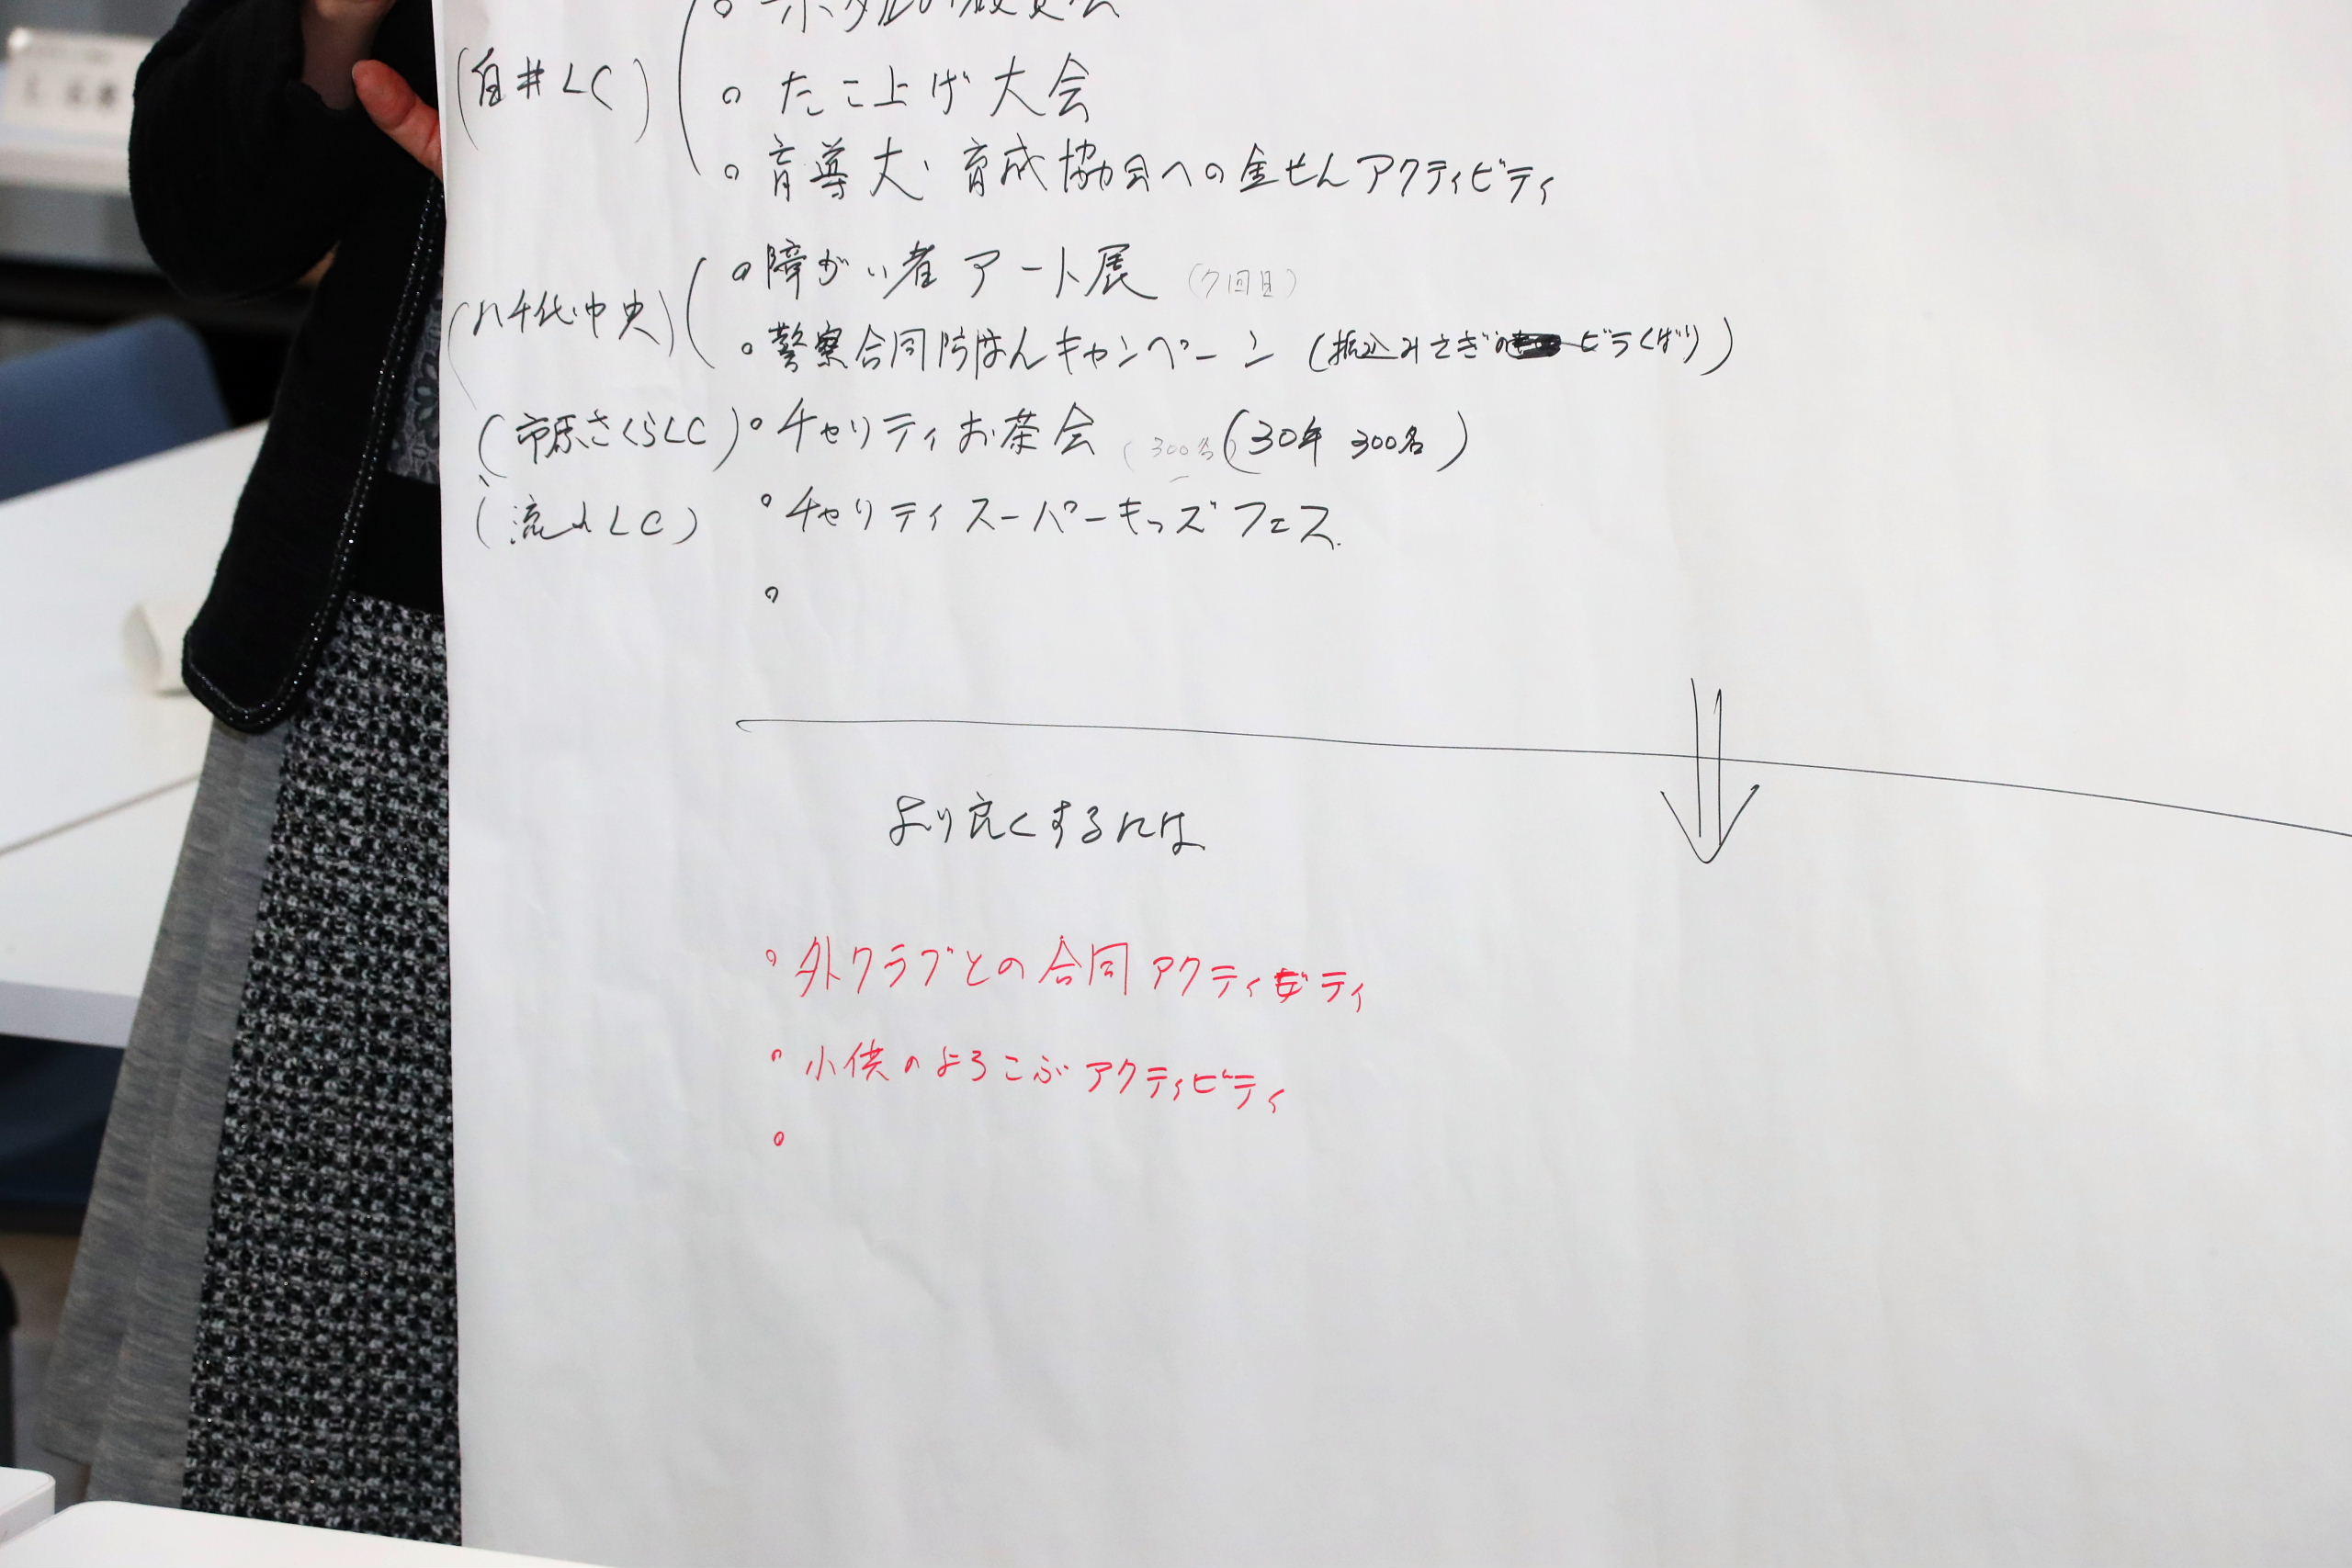 ホタルの観賞会
(白井LC) ○ たこ上げ大会
○ 盲導犬育成協会への金せんアクティビティ
○ 障がい者アート展 (7回目)
(八千代中央) ○ 警察合同防はんキャンペーン (振込みさぎの ビラくばり)
(市原さくらLC) ○ チャリティお茶会 (300名) (30年 300名)
(流山LC) ○ チャリティスーパーキッズフェス
○
より良くするには
○ 外クラブとの合同アクティビティ
○ 小供のよろこぶアクティビティ
○